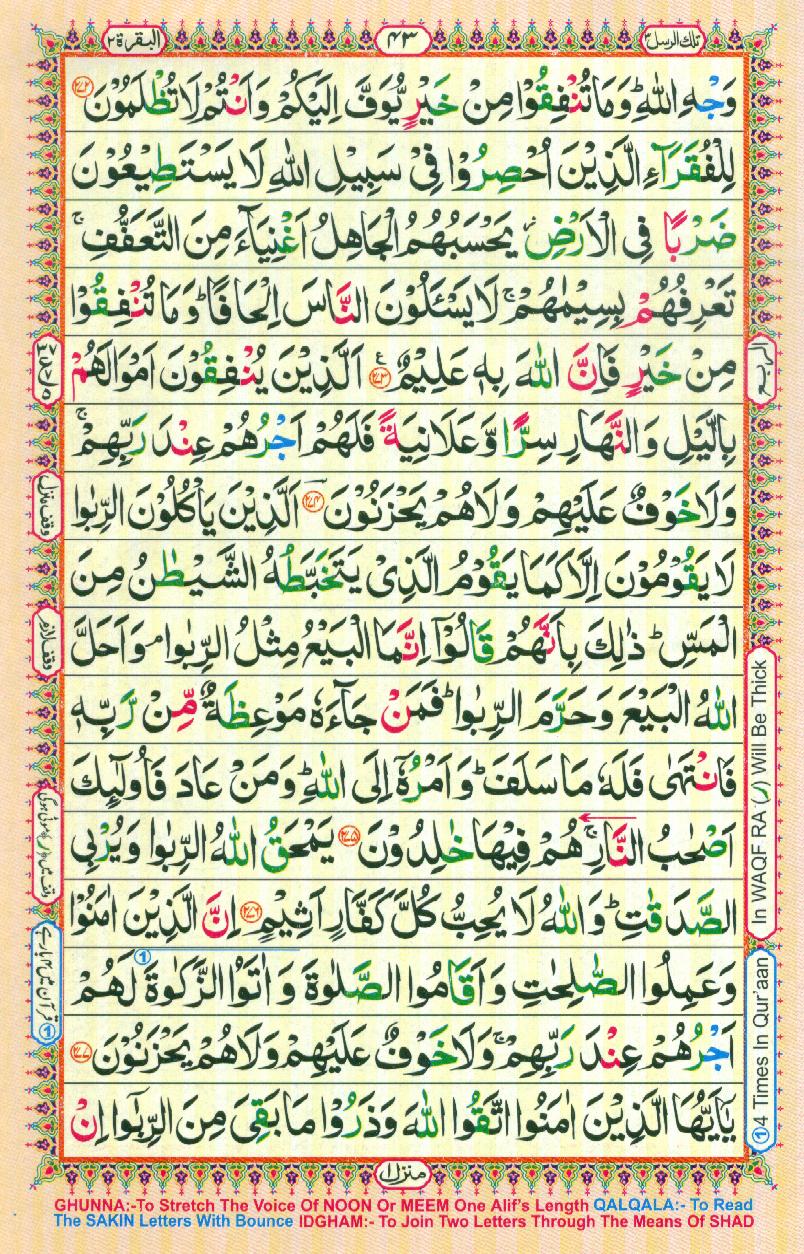 تلك الرسل ٣
٤٣
البقرة ٢
وَجْهِ اللّٰهِ ؕ وَمَا تُنْفِقُوْا مِنْ خَيْرٍ يُّوَفَّ اِلَيْكُمْ وَاَنْتُمْ لَا تُظْلَمُوْنَ ﴿۲۷۲﴾
لِلْفُقَرَآءِ الَّذِيْنَ اُحْصِرُوْا فِيْ سَبِيْلِ اللّٰهِ لَا يَسْتَطِيْعُوْنَ
ضَرْبًا فِى الْاَرْضِ ؗ يَحْسَبُهُمُ الْجَاهِلُ اَغْنِيَآءَ مِنَ التَّعَفُّفِ ۚ
تَعْرِفُهُمْ بِسِيْمٰىهُمْ ۚ لَا يَسْـَٔلُوْنَ النَّاسَ اِلْحَافًا ؕ وَمَا تُنْفِقُوْا
مِنْ خَيْرٍ فَاِنَّ اللّٰهَ بِهٖ عَلِيْمٌ ﴿۲۷۳﴾ اَلَّذِيْنَ يُنْفِقُوْنَ اَمْوَالَهُمْ
بِالَّيْلِ وَالنَّهَارِ سِرًّا وَّعَلَانِيَةً فَلَهُمْ اَجْرُهُمْ عِنْدَ رَبِّهِمْ ۚ
وَلَا خَوْفٌ عَلَيْهِمْ وَلَا هُمْ يَحْزَنُوْنَ ﴿۲۷۴﴾ اَلَّذِيْنَ يَاْكُلُوْنَ الرِّبٰوا
لَا يَقُوْمُوْنَ اِلَّا كَمَا يَقُوْمُ الَّذِيْ يَتَخَبَّطُهُ الشَّيْطٰنُ مِنَ
الْمَسِّ ؕ ذٰلِكَ بِاَنَّهُمْ قَالُوْۤا اِنَّمَا الْبَيْعُ مِثْلُ الرِّبٰوا ۘ وَاَحَلَّ
اللّٰهُ الْبَيْعَ وَحَرَّمَ الرِّبٰوا ؕ فَمَنْ جَآءَهٗ مَوْعِظَةٌ مِّنْ رَّبِّهٖ
فَانْتَهٰى فَلَهٗ مَا سَلَفَ ؕ وَاَمْرُهٗۤ اِلَى اللّٰهِ ؕ وَمَنْ عَادَ فَاُولٰٓئِكَ
اَصْحٰبُ النَّارِ ۚ هُمْ فِيْهَا خٰلِدُوْنَ ﴿۲۷۵﴾ يَمْحَقُ اللّٰهُ الرِّبٰوا وَيُرْبِى
الصَّدَقٰتِ ؕ وَاللّٰهُ لَا يُحِبُّ كُلَّ كَفَّارٍ اَثِيْمٍ ﴿۲۷۶﴾ اِنَّ الَّذِيْنَ اٰمَنُوْا
وَعَمِلُوا الصّٰلِحٰتِ وَاَقَامُوا الصَّلٰوةَ وَاٰتَوُا الزَّكٰوةَ لَهُمْ
اَجْرُهُمْ عِنْدَ رَبِّهِمْ ۚ وَلَا خَوْفٌ عَلَيْهِمْ وَلَا هُمْ يَحْزَنُوْنَ ﴿۲۷۷﴾
يٰۤاَيُّهَا الَّذِيْنَ اٰمَنُوا اتَّقُوا اللّٰهَ وَذَرُوْا مَا بَقِيَ مِنَ الرِّبٰۤوا اِنْ
منزل ١
الربع
In WAQF RA (ر) Will Be Thick
① 4 Times In Qur'aan
وقف منزل
وقف لازم
GHUNNA:-To Stretch The Voice Of NOON Or MEEM One Alif's Length QALQALA:- To Read
The SAKIN Letters With Bounce IDGHAM:- To Join Two Letters Through The Means Of SHAD